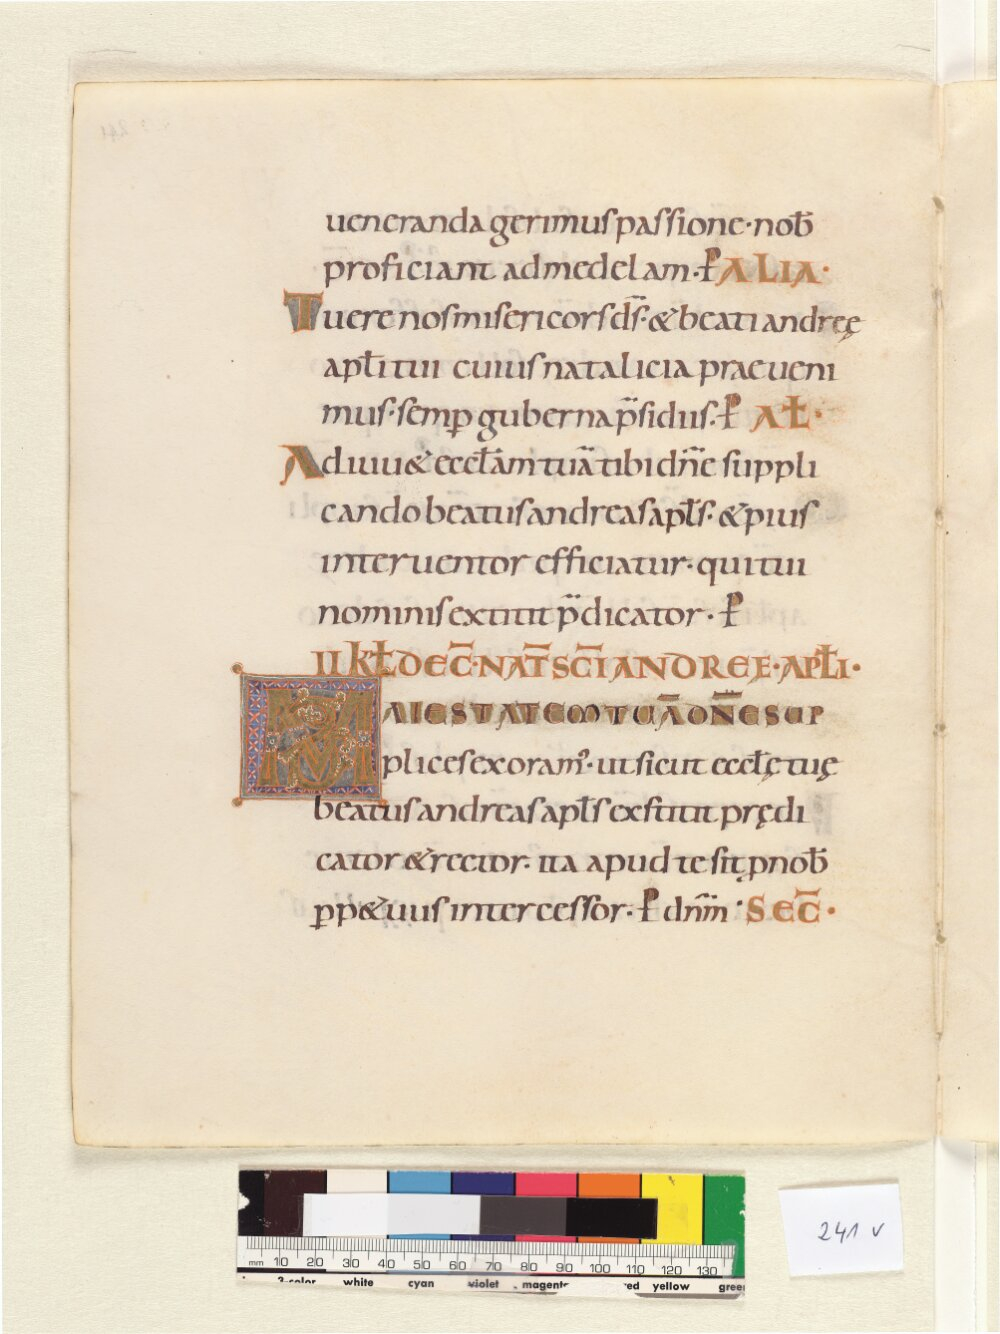 ueneranda gerimus passione· nob̄
proficiant ad medelam· P̄ ALIA·
Tuere nos misericors d̄s· & beati andreę
apłi tui cuius natalicia praeueni
mus· semp̱ guberna p̄sidiis· P̄ AŁ·
Adiuu& eccłam tuā tibi dn̄e suppli
cando beatus andreas apłs· & pius
interuentor efficiatur· qui tui
nominis extitit p̄dicator· P̄
II kł DEC̄· NAT̄ SC̄I ANDREE· APŁI·
MAIESTATEM TUĀ DN̄E SUP
plices exoram᾽· ut sicut eccłę tuę
beatus andreas apłs exstitit prędi
cator & rector· ita apud te sit p̱ nob̄
p̱p&uus intercessor· P̄ dn̄m· SEC̄·
241 v
mm 10 20 30 40 50 60 70 80 90 100 110 120 130
3-color white cyan violet magenta red yellow green